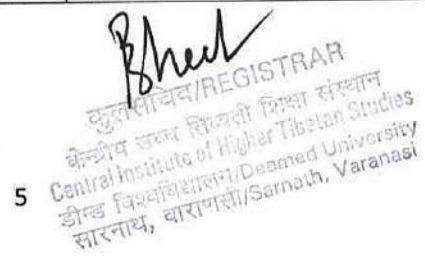 कुलसचिव/REGISTRAR
केन्द्रीय उच्च तिब्बती शिक्षा संस्थान
Central Institute of Higher Tibetan Studies
डीम्ड विश्वविद्यालय/Deemed University
सारनाथ, वाराणसी/Sarnath, Varanasi
5